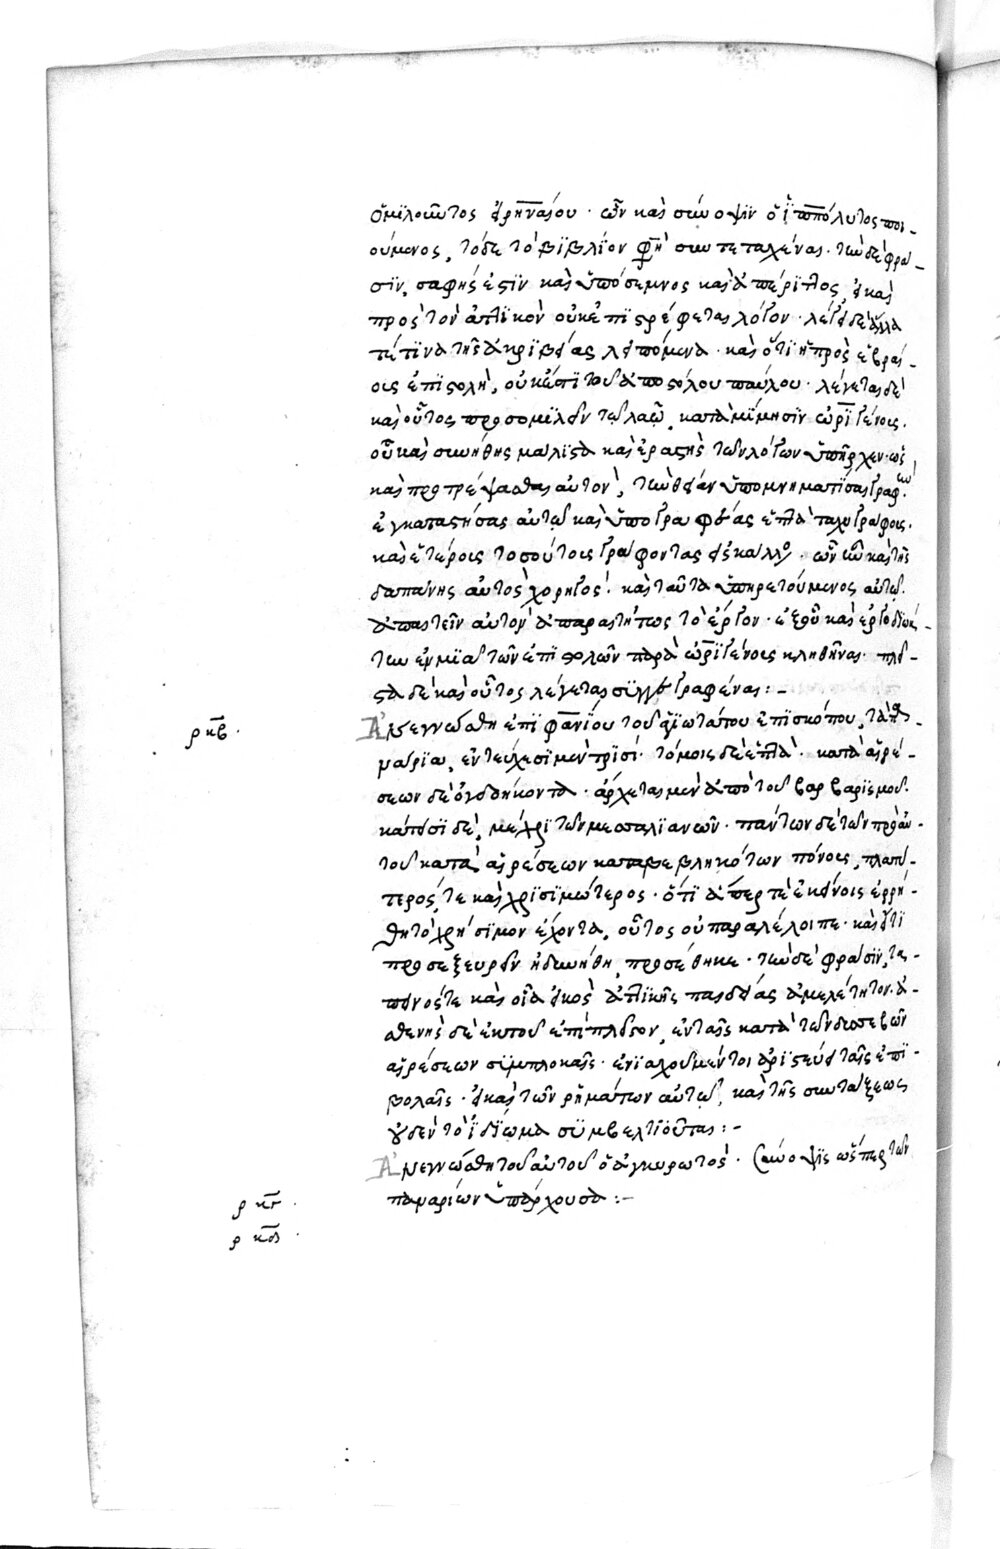 ὁμιλοῦντος εἰρηναίου · ὧν καὶ σύνοψιν ὁ ἱππόλυτος ποι-
ούμενος, τόδε τὸ βιβλίον φησὶ συντεταχέναι · τὴν δὲ φρά-
σιν, σαφής ἐστιν καὶ ὑπόσεμνος καὶ ἀπέριττος, εἰ καὶ
πρὸς τὸν ἀττικὸν οὐκ ἐπιστρέφεται λόγον · λέγει δὲ ἄλλα
τέ τινα τῆς ἀκριβείας λειπόμενα · καὶ ὅτι ἡ πρὸς ἑβραί-
οις ἐπιστολὴ, οὐκ ἔστι τοῦ ἀποστόλου παύλου · λέγεται δὲ
καὶ οὗτος προσομιλεῖν τῷ λαῷ, κατὰ μίμησιν ὠριγένους.
οὗ καὶ συνήθης μάλιστα καὶ ἐραστὴς τῶν λόγων ὑπῆρχεν · ὡς
καὶ προτρέψασθαι αὐτὸν, τὴν θείαν ὑπομνηματίσαι γραφὴν,
ἐγκαταστήσας αὐτῷ καὶ ὑπογραφέας ἑπτὰ ταχυγράφους.
καὶ ἑτέρους τοσούτους γράφοντας εἰς κάλλος · ὧν ἦν καὶ τῆς
δαπάνης αὐτὸς χορηγός · καὶ ταῦτα ὑπηρετούμενος αὐτῷ.
ἀπαιτεῖν αὐτὸν ἀπαραιτήτως τὸ ἔργον · ἐξ οὗ καὶ ἐργοδιώκ-
την ἐν μιᾷ τῶν ἐπιστολῶν παρὰ ὠριγένους κληθῆναι · πλεῖ-
στα δὲ καὶ οὗτος λέγεται συγγεγραφέναι :-
ρκβ · Ἀνεγνώσθη ἐπιφανίου τοῦ ἁγιωτάτου ἐπισκόπου, τὰ πα-
νάρια, ἐν τεύχεσι μὲν τρισὶ · τόμοις δὲ ἑπτὰ · κατὰ αἱρέ-
σεων δὲ ὀγδοήκοντα · ἄρχεται μὲν ἀπὸ τοῦ βαρβαρισμοῦ.
κάτεισι δὲ, μέχρι τῶν μεσσαλιανῶν · πάντων δὲ τῶν πρὸ αὐ-
τοῦ κατὰ αἱρέσεων καταβεβληκότων πόνους, πλατύ-
τερός τε καὶ χρησιμώτερος · ὅτι ἅπερ τε ἐκείνοις ἐρρή-
θη τὸ χρήσιμον ἔχοντα, οὗτος οὐ παραλέλοιπε · καὶ εἴ τι
προσεξευρεῖν ἠδυνήθη, προσέθηκε · τὴν δὲ φράσιν, τα-
πεινός τε καὶ οἷα εἰκὸς ἀττικῆς παιδείας ἀμελέτητον · ἀ-
σθενὴς δὲ ἐκ τοῦ ἐπὶ πλεῖστον, ἐν ταῖς κατὰ τῶν δυσσεβῶν
αἱρέσεων συμπλοκαῖς · ἐνιαχοῦ μέντοι ἀριστεύει ταῖς ἐπι-
βολαῖς · εἰ καὶ τῶν ῥημάτων αὐτῷ, καὶ τῆς συντάξεως
οὐδὲν τὸ ἰδίωμα συμβελτιοῦται :-
Ἀνεγνώσθη τοῦ αὐτοῦ ὁ ἀγκυρωτός · σύνοψις ὥσπερ τῶν
παναρίων ὑπάρχουσα :-
ρκγ ·
ρκδ ·